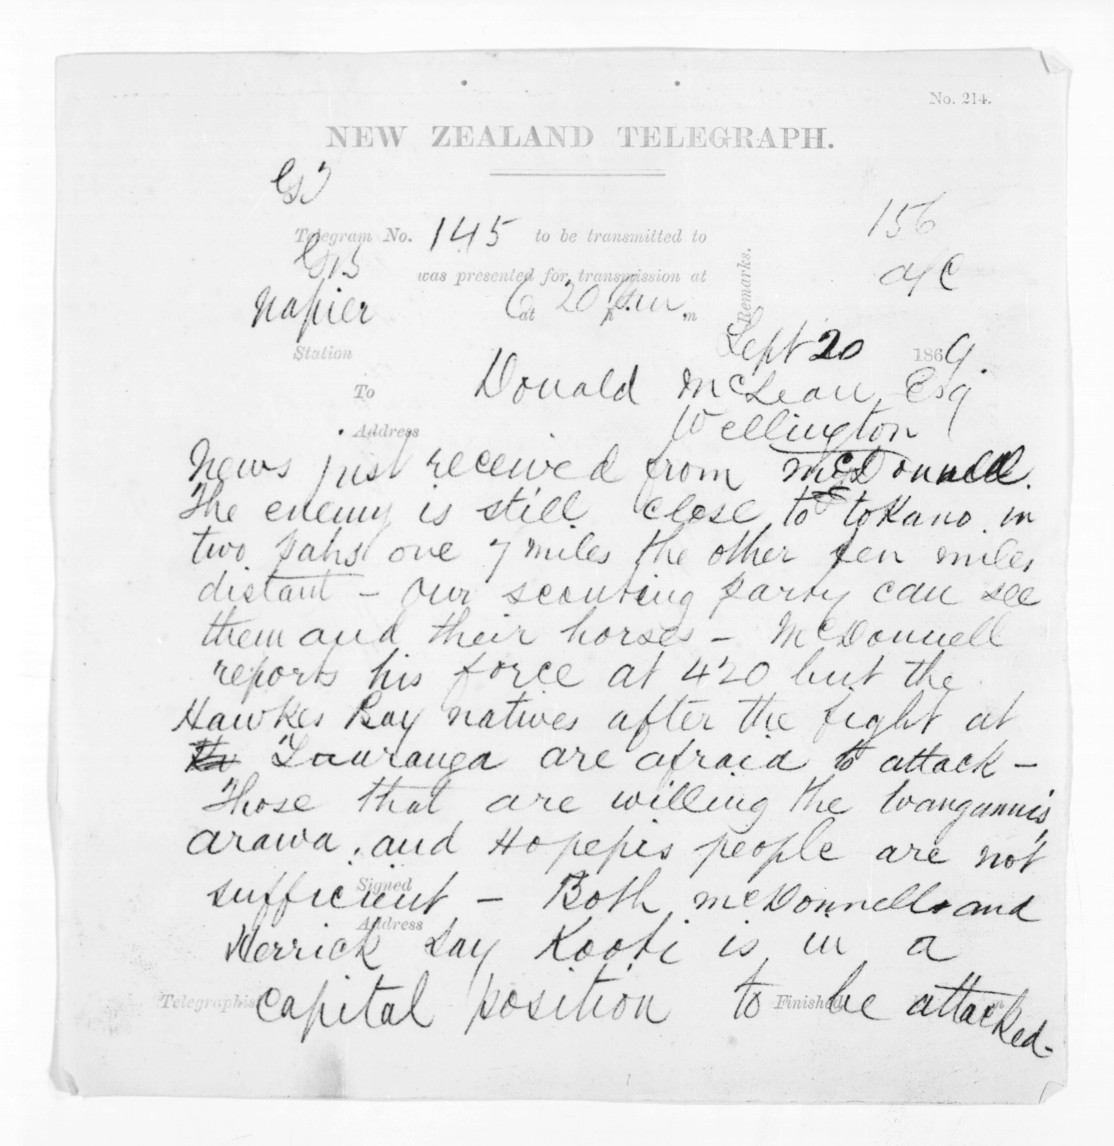 No. 214.
NEW ZEALAND TELEGRAPH.
Telegram No. 145 to be transmitted to
156
was presented for transmission at
Remarks.
Napier 6 at 20 p m
Station
Sept 20 1869.
To Donald McLean Esq
Address Wellington
News just received from McDonnell.
The enemy is still close to tokano in
two pahs one 7 miles the other ten miles
distant – Our scouting party can see
them and their horses – McDonnell
reports his force at 420 but the
Hawkes Bay natives after the fight at
Tauranga are afraid to attack –
Those that are willing the Wanganuis
arawa, and Hopepis people are not
sufficient – Both McDonnell and
Signed
Address
Herrick say Kooti is in a
Telegraphist capital position to Finished be attacked –